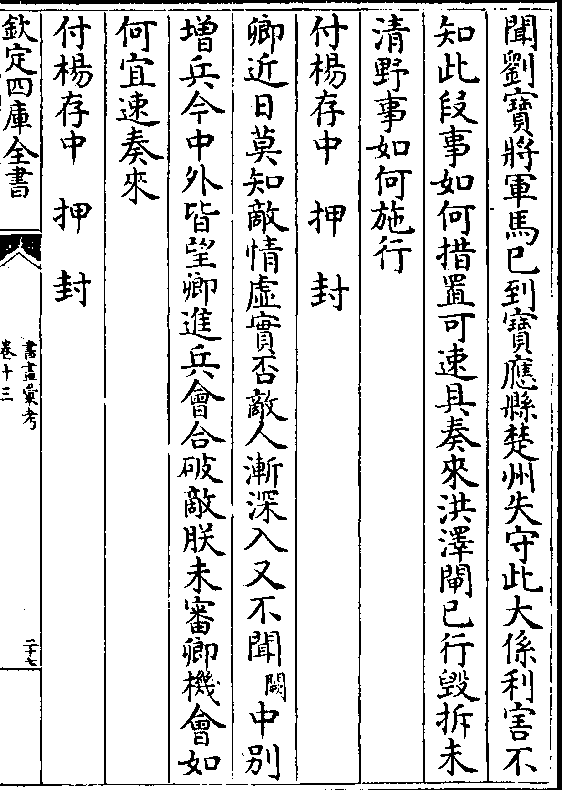 聞劉寶將軍馬已到寶應縣楚州失守此大係利害不
知此段事如何措置可速具奏來洪澤閘已行毀拆未
清野事如何施行
付楊存中　押　封
卿近日莫知敵情虛實否敵人漸深入又不聞闕中別
增兵今中外皆望卿進兵會合破敵朕未審卿機會如
何宜速奏來
付楊存中　押　封
欽定四庫全書
書畫彙考
卷十三
二十七